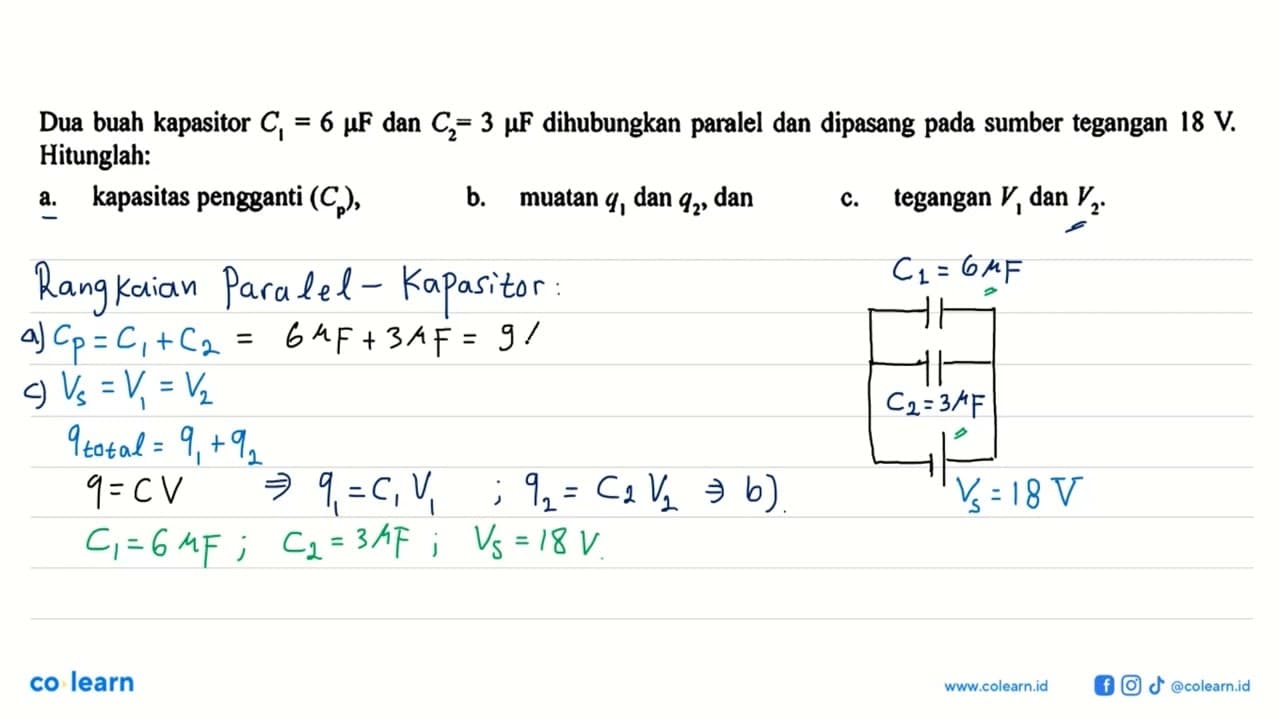 Dua buah kapasitor C₁ = 6 μF dan C₂= 3 μF dihubungkan paralel dan dipasang pada sumber tegangan 18 V.
Hitunglah:
a. kapasitas pengganti (Cₚ), b. muatan q₁ dan q₂, dan c. tegangan V₁ dan V₂.
Rangkaian Paralel - Kapasitor:
C₁ = 6 μF
a) Cp = C₁ + C₂ = 6 μF + 3 μF = 9
c) Vs = V₁ = V₂
C₂ = 3 μF
qtotal = q₁ + q₂
q = CV ⇒ q₁ = C₁ V₁ ; q₂ = C₂ V₂ ⇒ b).
Vs = 18 V
C₁ = 6 μF ; C₂ = 3 μF ; Vs = 18 V.
co learn
www.colearn.id @colearn.id